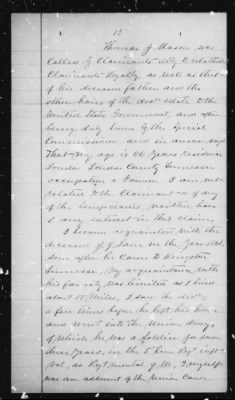 13
Thomas J Mason, was
called by Claimants atty to establish
Claimants Loyalty, as well as that
of his deceased father and the
other heirs of the decd estate to the
United States Government, and after
being duly Sworn by the Special
Commissioner, and in answer says
That my age is 66 Years residence
Loudon Loudon County Tennessee
occupation a Farmer I am not
related to the Claimant or of any
of the beneficiaries, neither have
I any interest in this claim,
I became acquainted with the
deceased J. J. Lane in the year
Soon after he came to Kingston
Tennessee, My acquaintance with
his family was limited as I lived
about 18 Miles, I saw the decd
a few times before he left his home
and went into the Union Army,
of which he was a Soldier for some
three years, in the 5th Tenn Regt
Vol, as Regimental Q. M. I myself
was an adherent of the Union Cause.